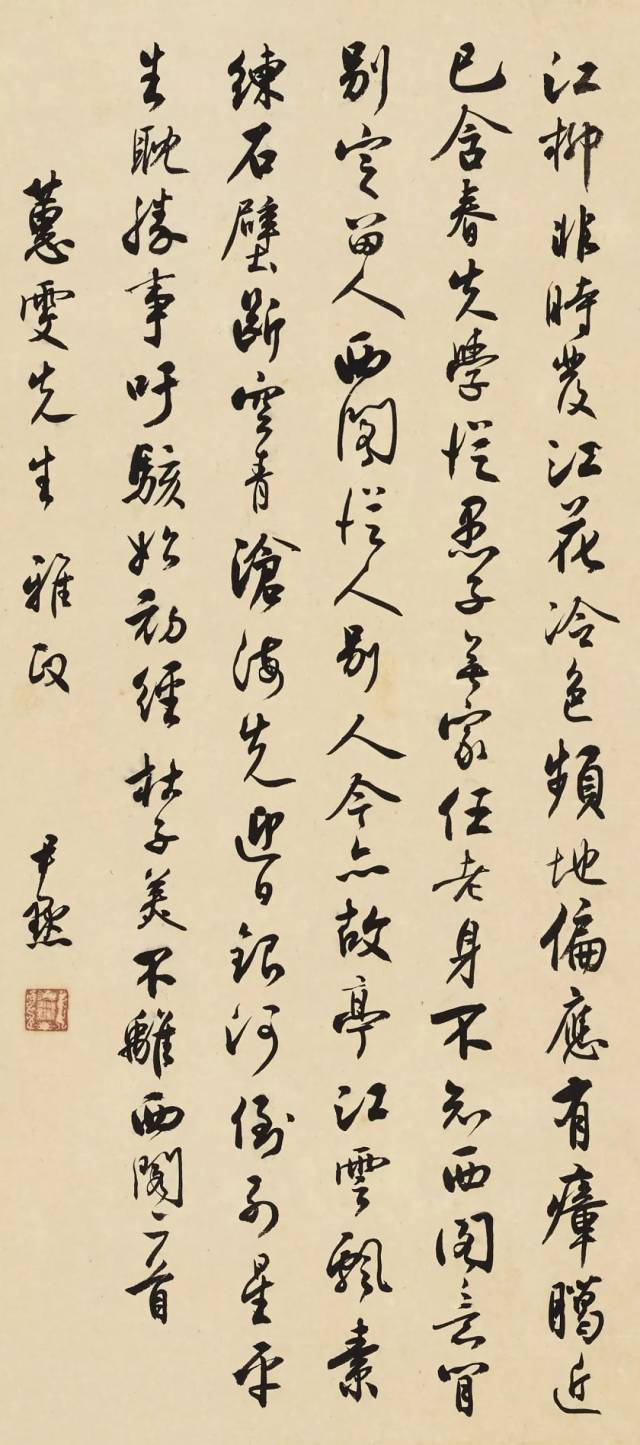 江柳非時發江花冷色頻地偏應有瘴臈近
已含春失學從愚子無家任老身不知西閣意肎
別定留人西閣從人別人今亦故亭江雲飄素
練石壁斷空青滄海先迎日銀河倒列星平
生耽勝事吁駭始初經杜子美不離西閣二首
蕙雯先生雅政 尹默